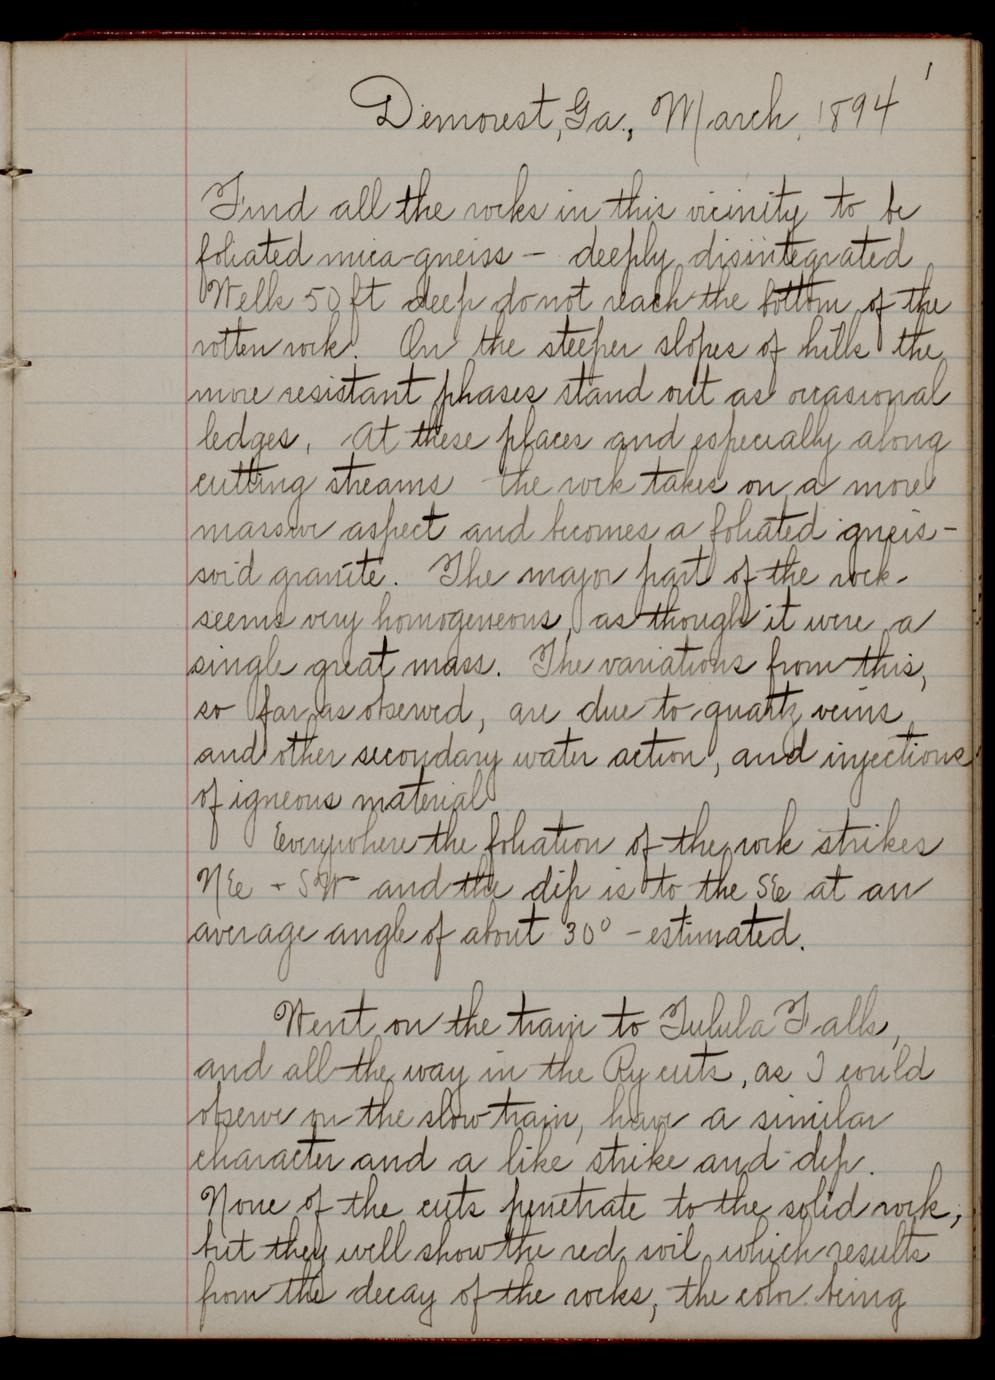 1
Demorest, Ga., March, 1894
Find all the rocks in this vicinity to be
foliated mica-gneiss - deeply disintegrated
Wells 50 ft deep do not reach the bottom of the
rotten rock. On the steeper slopes of hills the
more resistant phases stand out as occasional
ledges. At these places and especially along
cutting streams the rock takes on a more
massive aspect and becomes a foliated gneis-
soid granite. The major part of the rock
seems very homogeneous, as though it were a
single great mass. The variations from this,
so far as observed, are due to quartz veins
and other secondary water action, and injections
of igneous material
Everywhere the foliation of the rock strikes
NE + SW and the dip is to the SE at an
average angle of about 30° - estimated.
Went on the train to Tulula Falls,
and all the way in the Ry cuts, as I could
observe on the slow train, have a similar
character and a like strike and dip.
None of the cuts penetrate to the solid rock,
but they well show the red soil which results
from the decay of the rocks, the color being